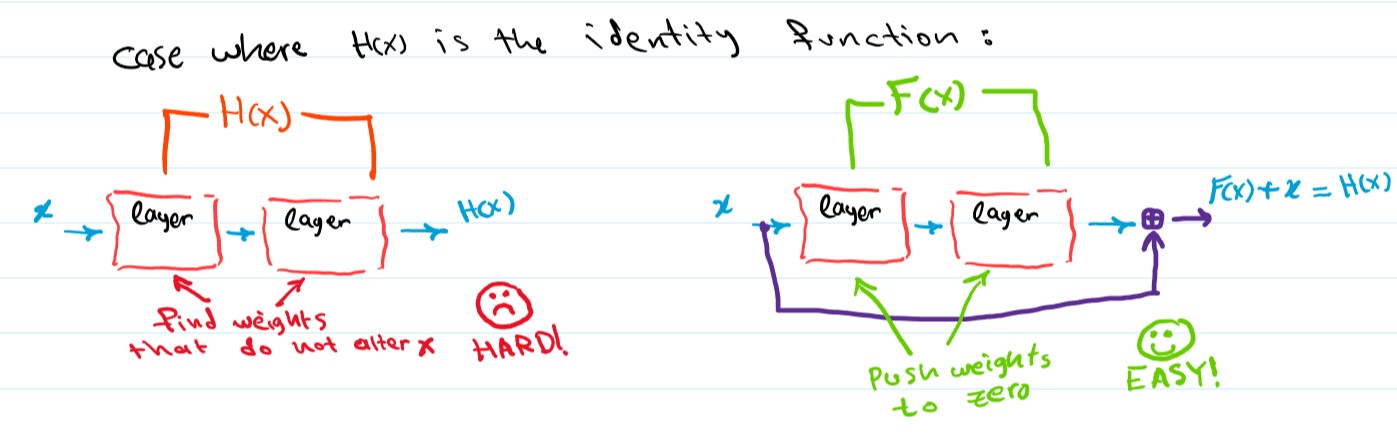 case where H(x) is the identity function:
H(x)
x
layer
layer
H(x)
find weights
that do not alter x
HARD!
F(x)
x
layer
layer
F(x)+x = H(x)
Push weights
to zero
EASY!